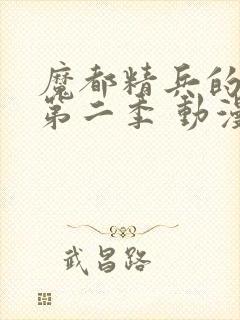 魔都精兵的
第二季 動漫
武昌路